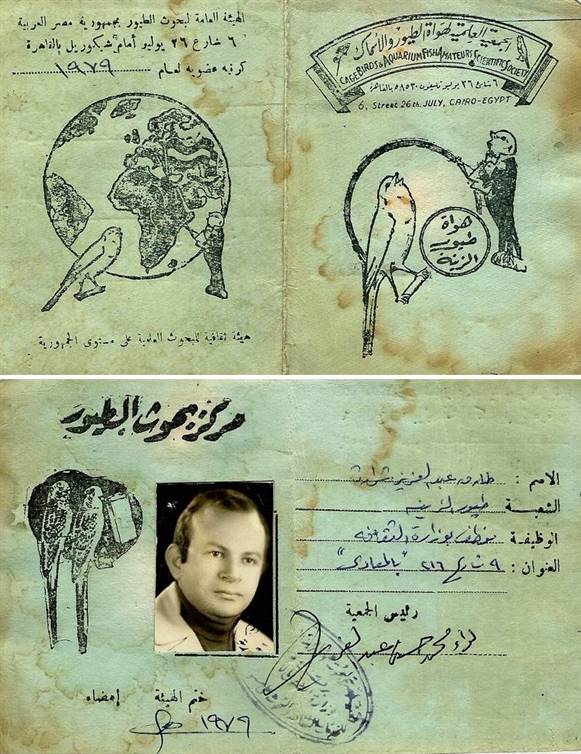 الهيئة العامة لبحوث الطيور بجمهورية مصر العربية
٦ شارع ٢٦ يوليو أمام شيكوريل بالقاهرة
كرنيه عضوية لعام ١٩٧٩
هيئة ثقافية للبحوث العلمية على مستوى الجمهورية
الجمعية العلمية لهواة الطيور والأسماك
CAGE BIRDS & AQUARIUM FISH AMATEURS SCIENTIFIC SOCIETY
٦ شارع ٢٦ يوليو تليفون ٥٨٥٣٠ بالقاهرة
6, Street 26th. JULY, CAIRO-EGYPT
هواة
طيور
الزينة
مركز بحوث الطيور
الاسم : طارق عبد العزيز
الشعبة طيور الزينة
الوظيفة : بوزارة الثقافة
العنوان : ٩ ش ٢١٦ "بالمعادى"
رئيس الجمعية
لواء محمد حسن عبد
ختم الهيئة إمضاء
١٩٧٩